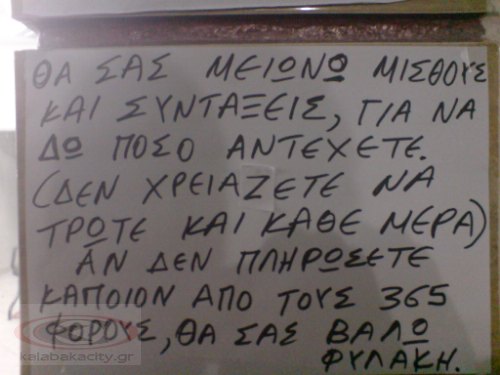 ΘΑ ΣΑΣ ΜΕΙΩΝΩ ΜΙΣΘΟΥΣ
ΚΑΙ ΣΥΝΤΑΞΕΙΣ, ΓΙΑ ΝΑ
ΔΩ ΠΟΣΟ ΑΝΤΕΧΕΤΕ.
(ΔΕΝ ΧΡΕΙΑΖΕΤΕ ΝΑ
ΤΡΩΤΕ ΚΑΙ ΚΑΘΕ ΜΕΡΑ)
ΑΝ ΔΕΝ ΠΛΗΡΩΣΕΤΕ
ΚΑΠΟΙΟΝ ΑΠΟ ΤΟΥΣ 365
ΦΟΡΟΥΣ, ΘΑ ΣΑΣ ΒΑΛΩ
ΦΥΛΑΚΗ.
kalabakacity.gr